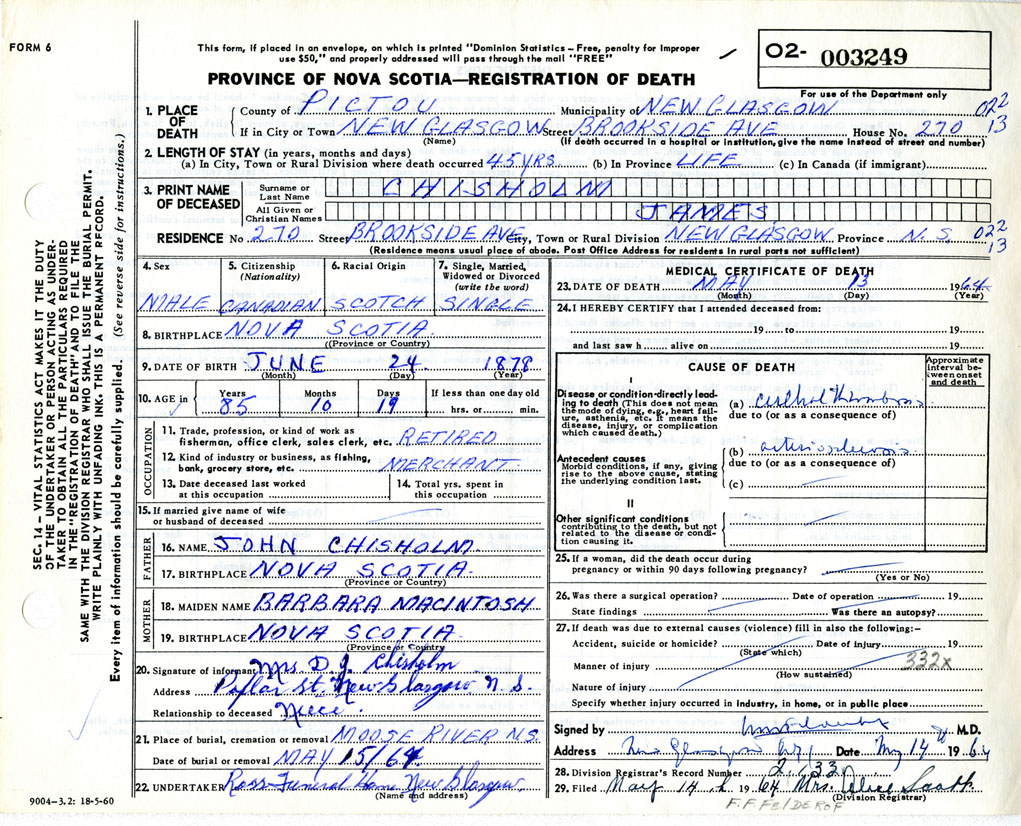 FORM 6
This form, if placed in an envelope, on which is printed "Dominion Statistics – Free, penalty for improper
use $50," and properly addressed will pass through the mail "FREE"
O2- 003249
For use of the Department only
PROVINCE OF NOVA SCOTIA—REGISTRATION OF DEATH
1. PLACE OF DEATH County of PICTOU Municipality of NEW GLASGOW 022
If in City or Town NEW GLASGOW Street BROOKSIDE AVE House No. 270 13
(Name) (If death occurred in a hospital or institution, give the name instead of street and number)
2. LENGTH OF STAY (in years, months and days)
(a) In City, Town or Rural Division where death occurred 45 YRS. (b) In Province LIFE (c) In Canada (if immigrant)
3. PRINT NAME OF DECEASED
Surname or Last Name CHISHOLM
All Given or Christian Names JAMES
RESIDENCE No 270 Street BROOKSIDE AVE City, Town or Rural Division NEW GLASGOW Province N. S. 022
13
(Residence means usual place of abode. Post Office Address for residents in rural parts not sufficient)
4. Sex 5. Citizenship (Nationality) 6. Racial Origin 7. Single, Married, Widowed or Divorced (write the word)
MALE CANADIAN SCOTCH SINGLE
8. BIRTHPLACE NOVA SCOTIA
((Province or Country)
9. DATE OF BIRTH JUNE 24 1878
(Month) (Day) (Year)
10. AGE in Years Months Days If less than one day old
85 10 19 hrs. or min.
OCCUPATION
11. Trade, profession, or kind of work as
fisherman, office clerk, sales clerk, etc. RETIRED
12. Kind of industry or business, as fishing,
bank, grocery store, etc. MERCHANT
13. Date deceased last worked at this occupation
14. Total yrs. spent in this occupation
15. If married give name of wife
or husband of deceased
FATHER
16. NAME JOHN CHISHOLM
17. BIRTHPLACE NOVA SCOTIA
(Province or Country)
MOTHER
18. MAIDEN NAME BARBARA MACINTOSH
19. BIRTHPLACE NOVA SCOTIA
(Province or Country)
20. Signature of informant Mrs. D. J. Chisholm
Address Poplar St. New Glasgow N. S.
Relationship to deceased Niece.
21. Place of burial, cremation or removal MOOSE RIVER N.S.
Date of burial or removal MAY 15/64
22. UNDERTAKER Ross Funeral Home New Glasgow
(Name and address)
9004–3.2: 18-5-60
MEDICAL CERTIFICATE OF DEATH
23. DATE OF DEATH MAY 13 1964
(Month) (Day) (Year)
24. I HEREBY CERTIFY that I attended deceased from:
19 to 19
and last saw h alive on 19
CAUSE OF DEATH
Approximate interval between onset and death
I
Disease or condition directly leading to death (This does not mean
the mode of dying, e.g., heart failure, asthenia, etc. It means the
disease, injury, or complication which caused death.)
(a)
due to (or as a consequence of)
Antecedent causes
Morbid conditions, if any, giving
rise to the above cause, stating
the underlying condition last.
(b)
due to (or as a consequence of)
(c)
II
Other significant conditions
contributing to the death, but not
related to the disease or condition causing it.
25. If a woman, did the death occur during
pregnancy or within 90 days following pregnancy?
(Yes or No)
26. Was there a surgical operation? Date of operation 19
State findings Was there an autopsy?
27. If death was due to external causes (violence) fill in also the following:–
Accident, suicide or homicide? Date of injury 19
(State which)
Manner of injury 332x
(How sustained)
Nature of injury
Specify whether injury occurred in industry, in home, or in public place
Signed by M.D.
Address New Glasgow Date May 14 1964
28. Division Registrar's Record Number 2,33
29. Filed May 14 1964 Mrs. Alice Scott
(Division Registrar)
SEC. 14 – VITAL STATISTICS ACT MAKES IT THE DUTY
OF THE UNDERTAKER OR PERSON ACTING AS UNDERTAKER TO OBTAIN ALL THE PARTICULARS REQUIRED
IN THE "REGISTRATION OF DEATH" AND TO FILE THE
SAME WITH THE DIVISION REGISTRAR WHO SHALL ISSUE THE BURIAL PERMIT.
WRITE PLAINLY WITH UNFADING INK. THIS IS A PERMANENT RECORD.
Every item of information should be carefully supplied. (See reverse side for instructions.)